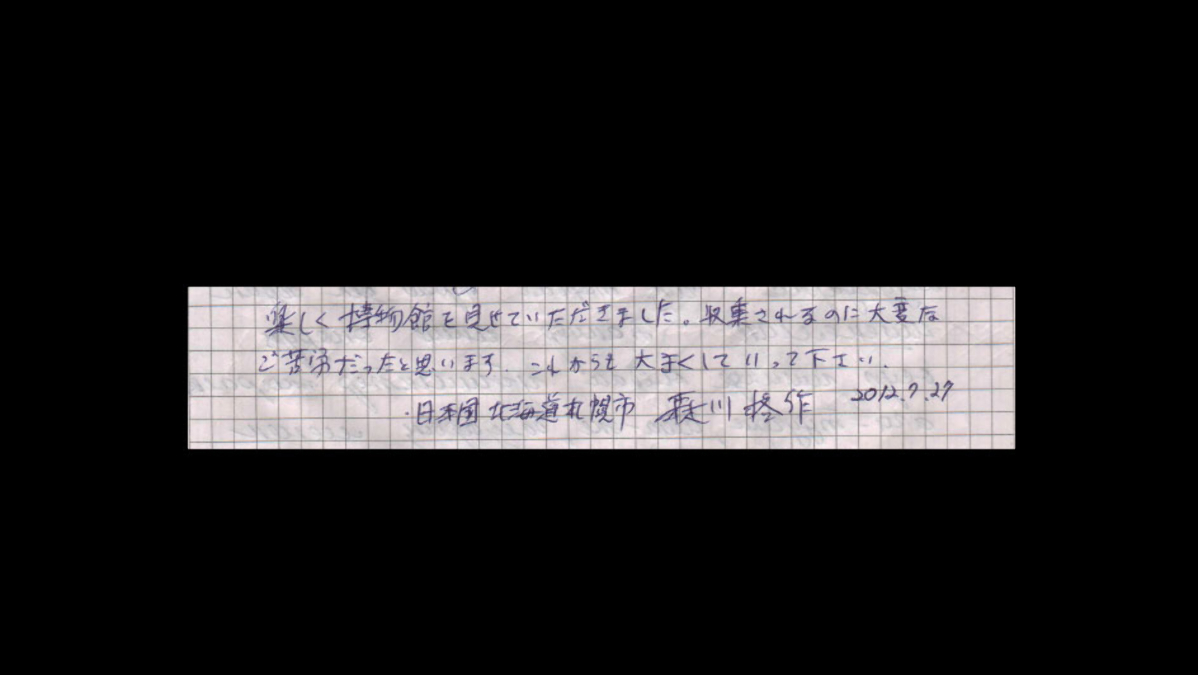 楽しく博物館を見せていただきました。収集されるのに大変な
ご苦労だったと思います。これからも大きくしていって下さい。
・日本国北海道札幌市 川 作 2012.7.27